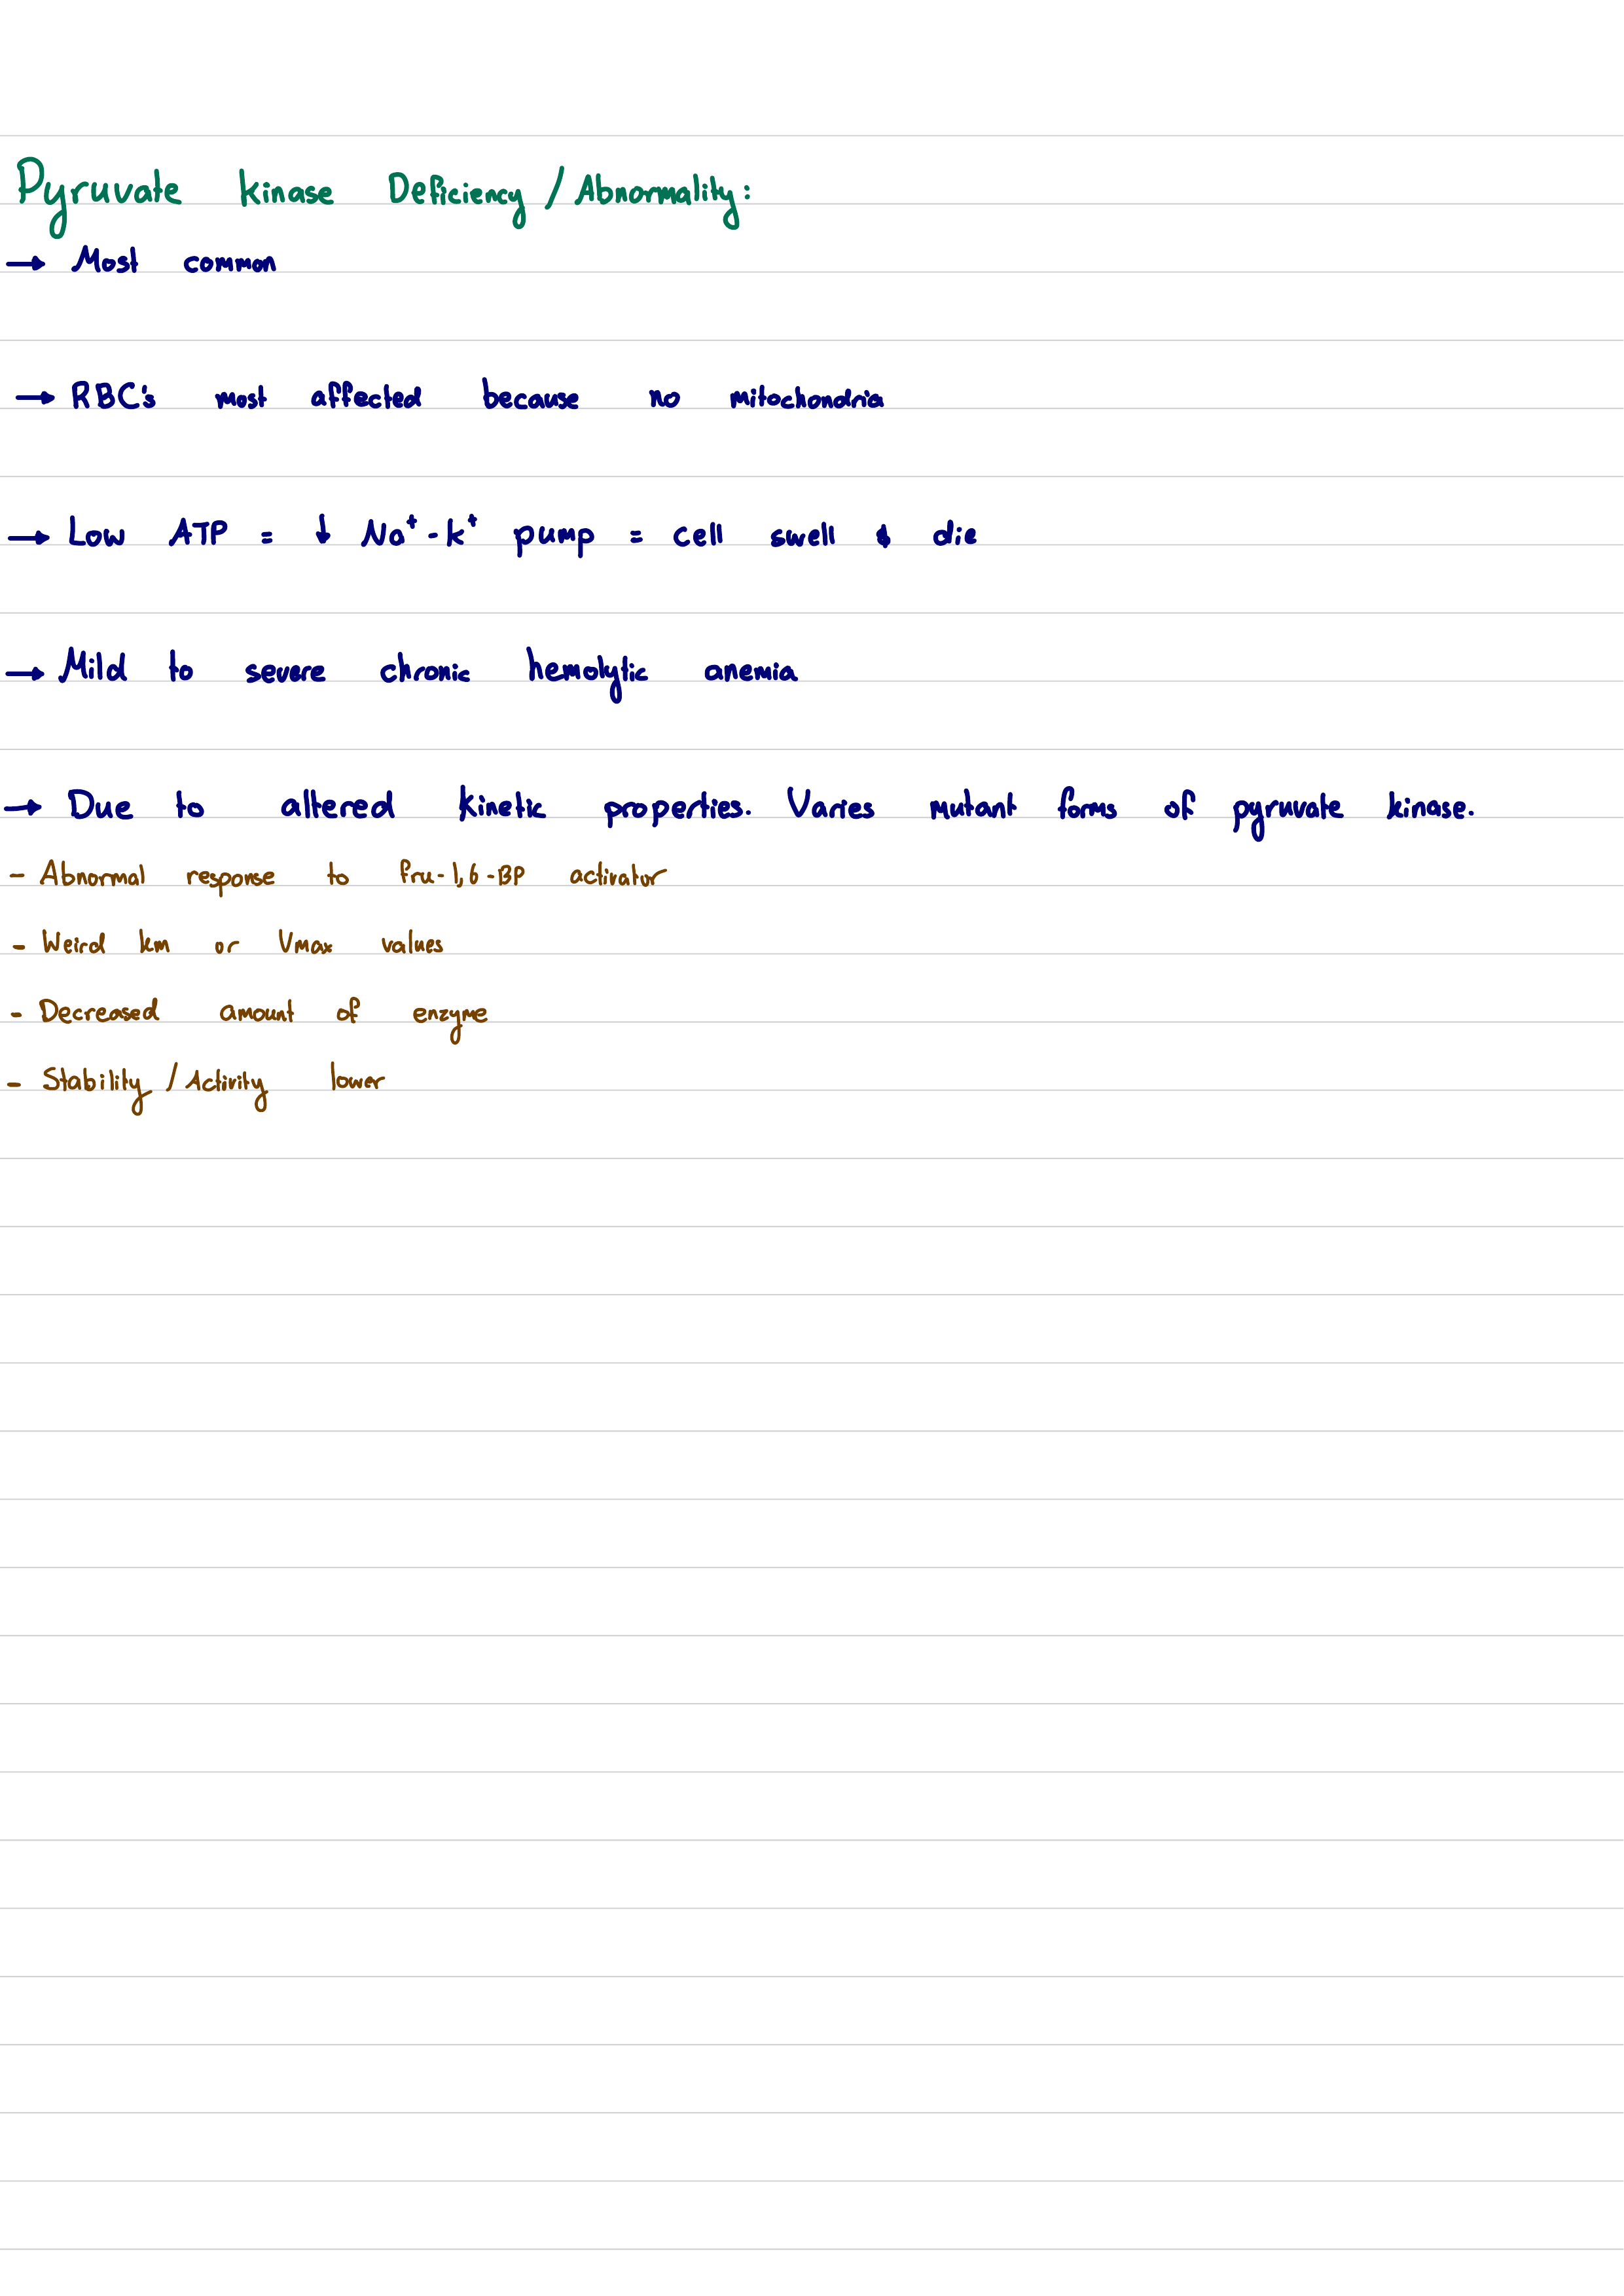 Pyruvate kinase Deficiency / Abnormality:
→ Most common
→ RBC's most affected because no mitochondria
→ Low ATP = ↓ Na⁺-K⁺ pump = cell swell & die
→ Mild to severe chronic hemolytic anemia
→ Due to altered kinetic properties. Varies mutant forms of pyruvate kinase.
- Abnormal response to fru-1,6-BP activator
- Weird km or Vmax values
- Decreased amount of enzyme
- Stability / Activity lower